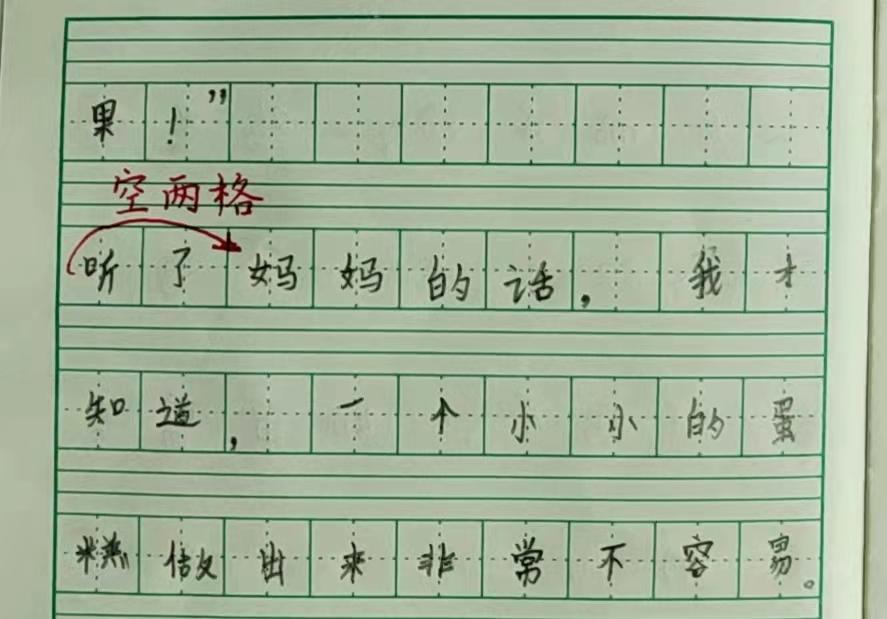 果！”
空两格
听了妈妈的话，我才
知道，一个小小的蛋
糕做出来非常不容易。